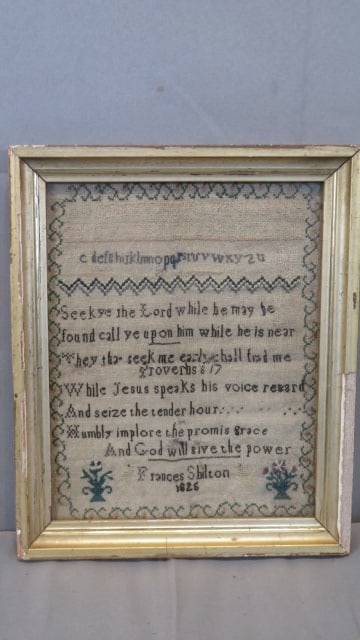 c defghijklmnopqrstuvwxyzu
Seek ye the Lord while he may be
found call ye upon him while he is near
They that seek me early shall find me
Proverbs 8 17
While Jesus speaks his voice regard
And seize the tender hour
Humbly implore the promis grace
And God will give the power
Frances Shilton
1826